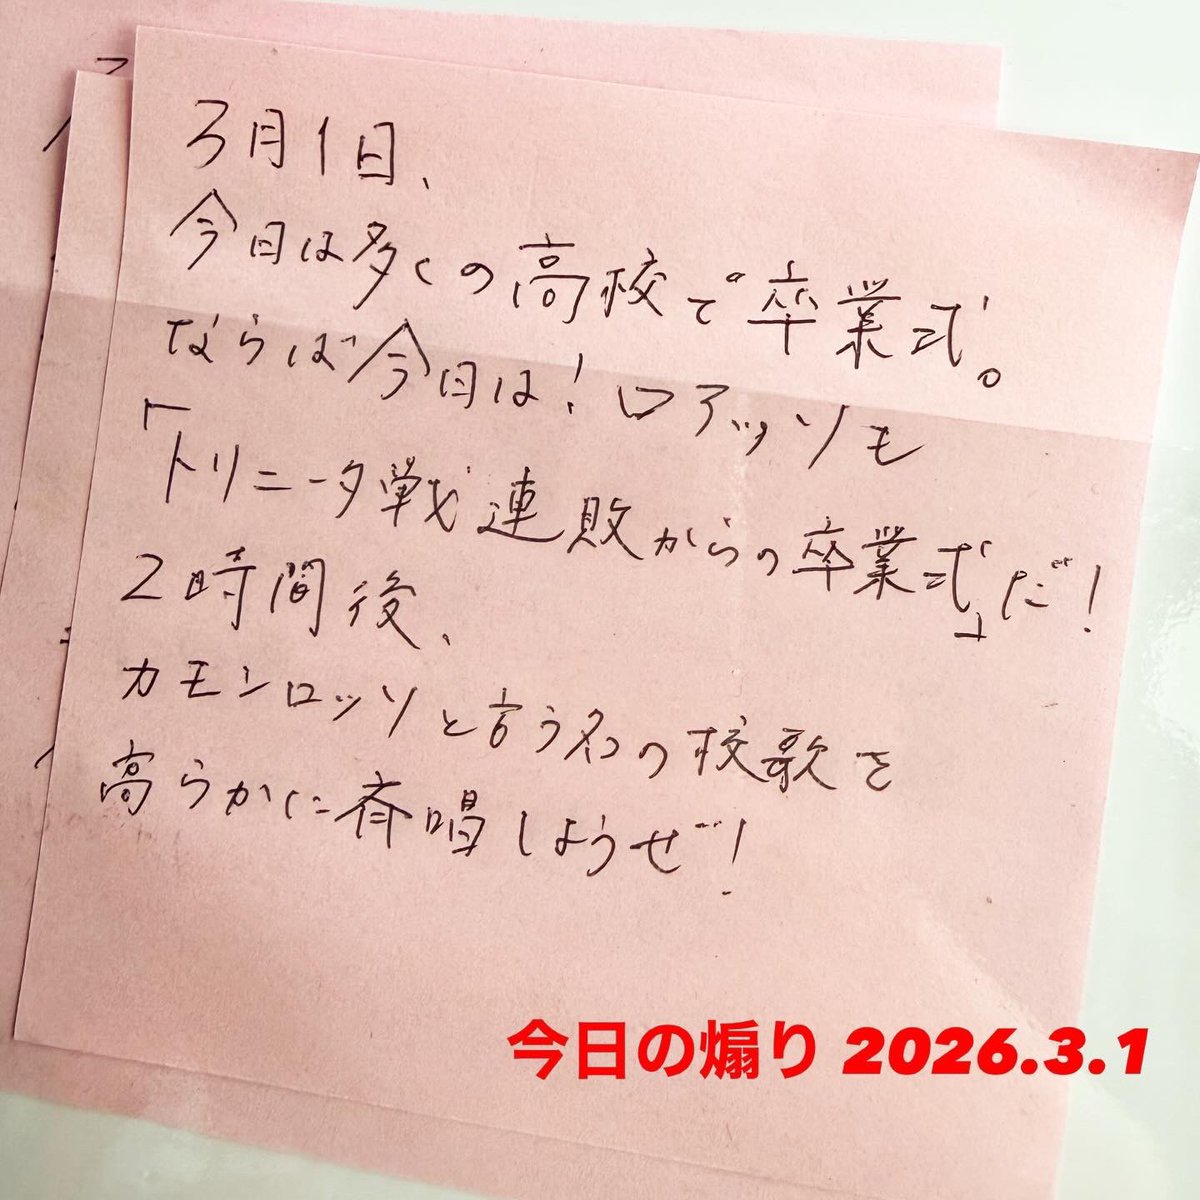 3月1日、
今日は多くの高校で卒業式。
ならば今日は!ロアッソも
「トリニータ戦連敗からの卒業式」だ!
2時間後、
カモンロッソと言う名の校歌を
高らかに斉唱しようぜ!
今日の煽り 2026.3.1